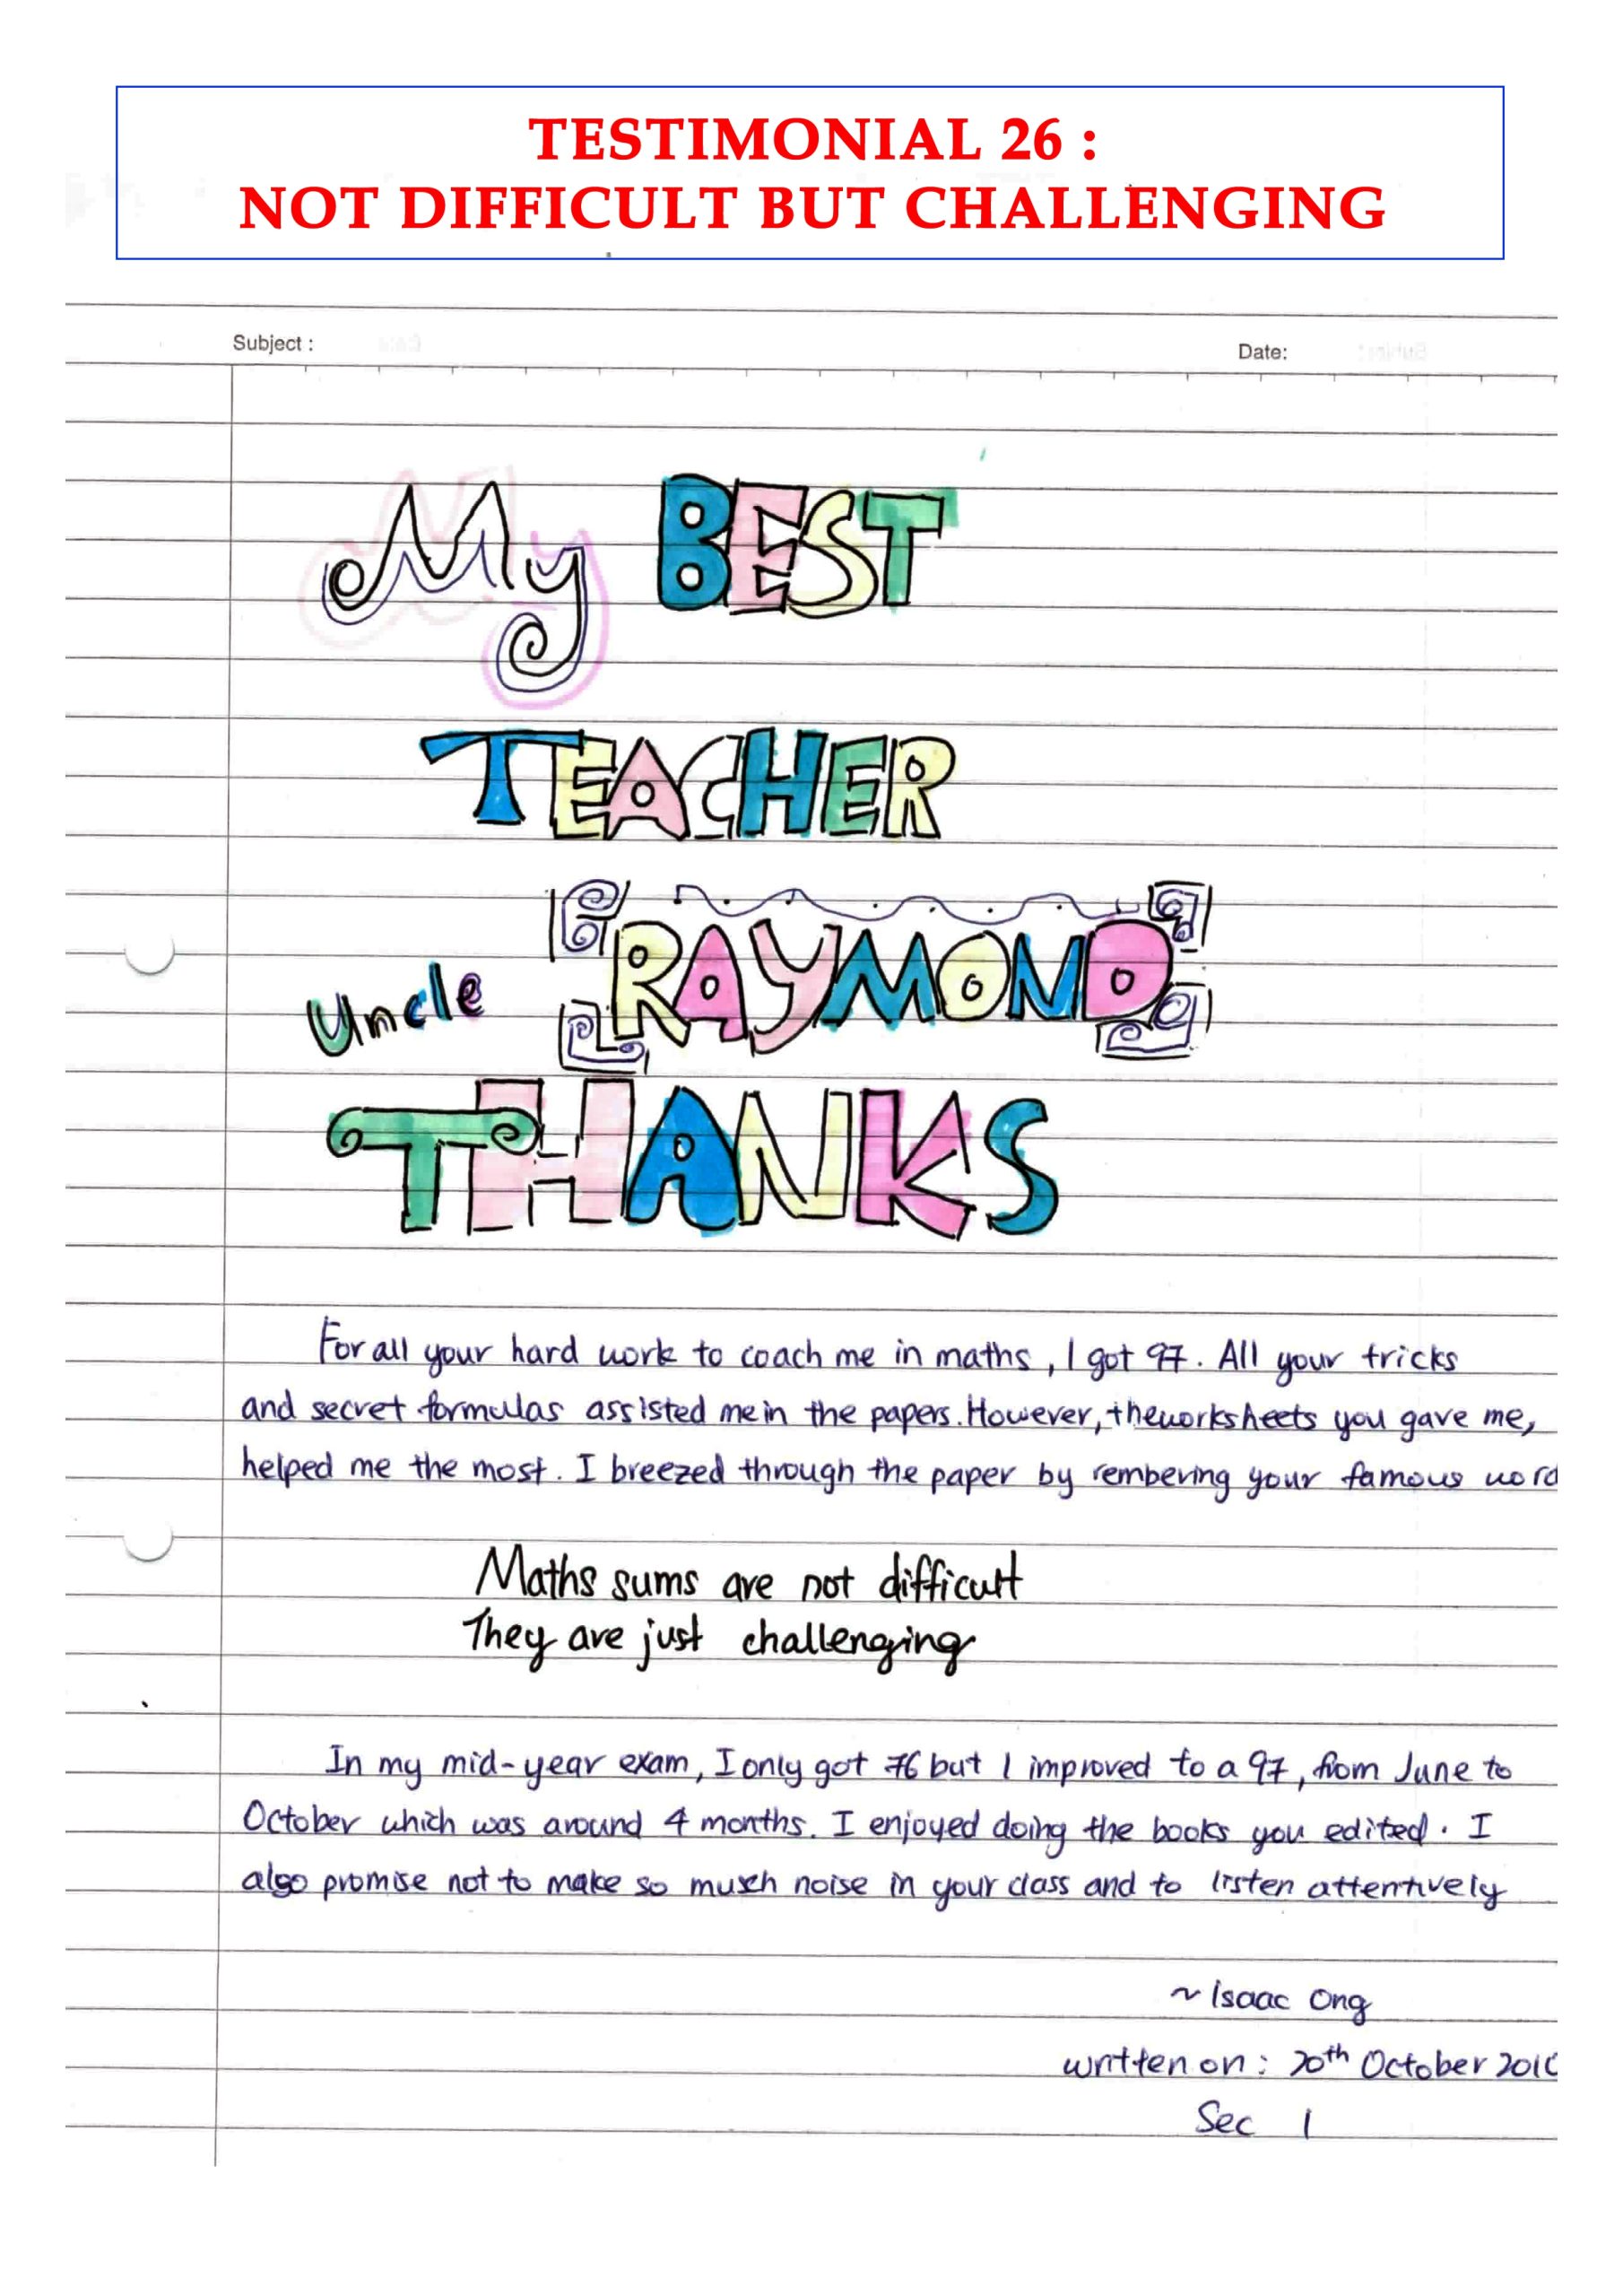 TESTIMONIAL 26 :
NOT DIFFICULT BUT CHALLENGING
Subject : Date:
My BEST
TEACHER
Uncle RAYMOND
THANKS
For all your hard work to coach me in maths, I got 97. All your tricks
and secret formulas assisted me in the papers. However, the worksheets you gave me,
helped me the most. I breezed through the paper by rembering your famous word
Maths sums are not difficult
They are just challenging
In my mid-year exam, I only got 76 but I improved to a 97, from June to
October which was around 4 months. I enjoyed doing the books you edited. I
also promise not to make so much noise in your class and to listen attentively
~ Isaac Ong
written on: 20th October
Sec 1